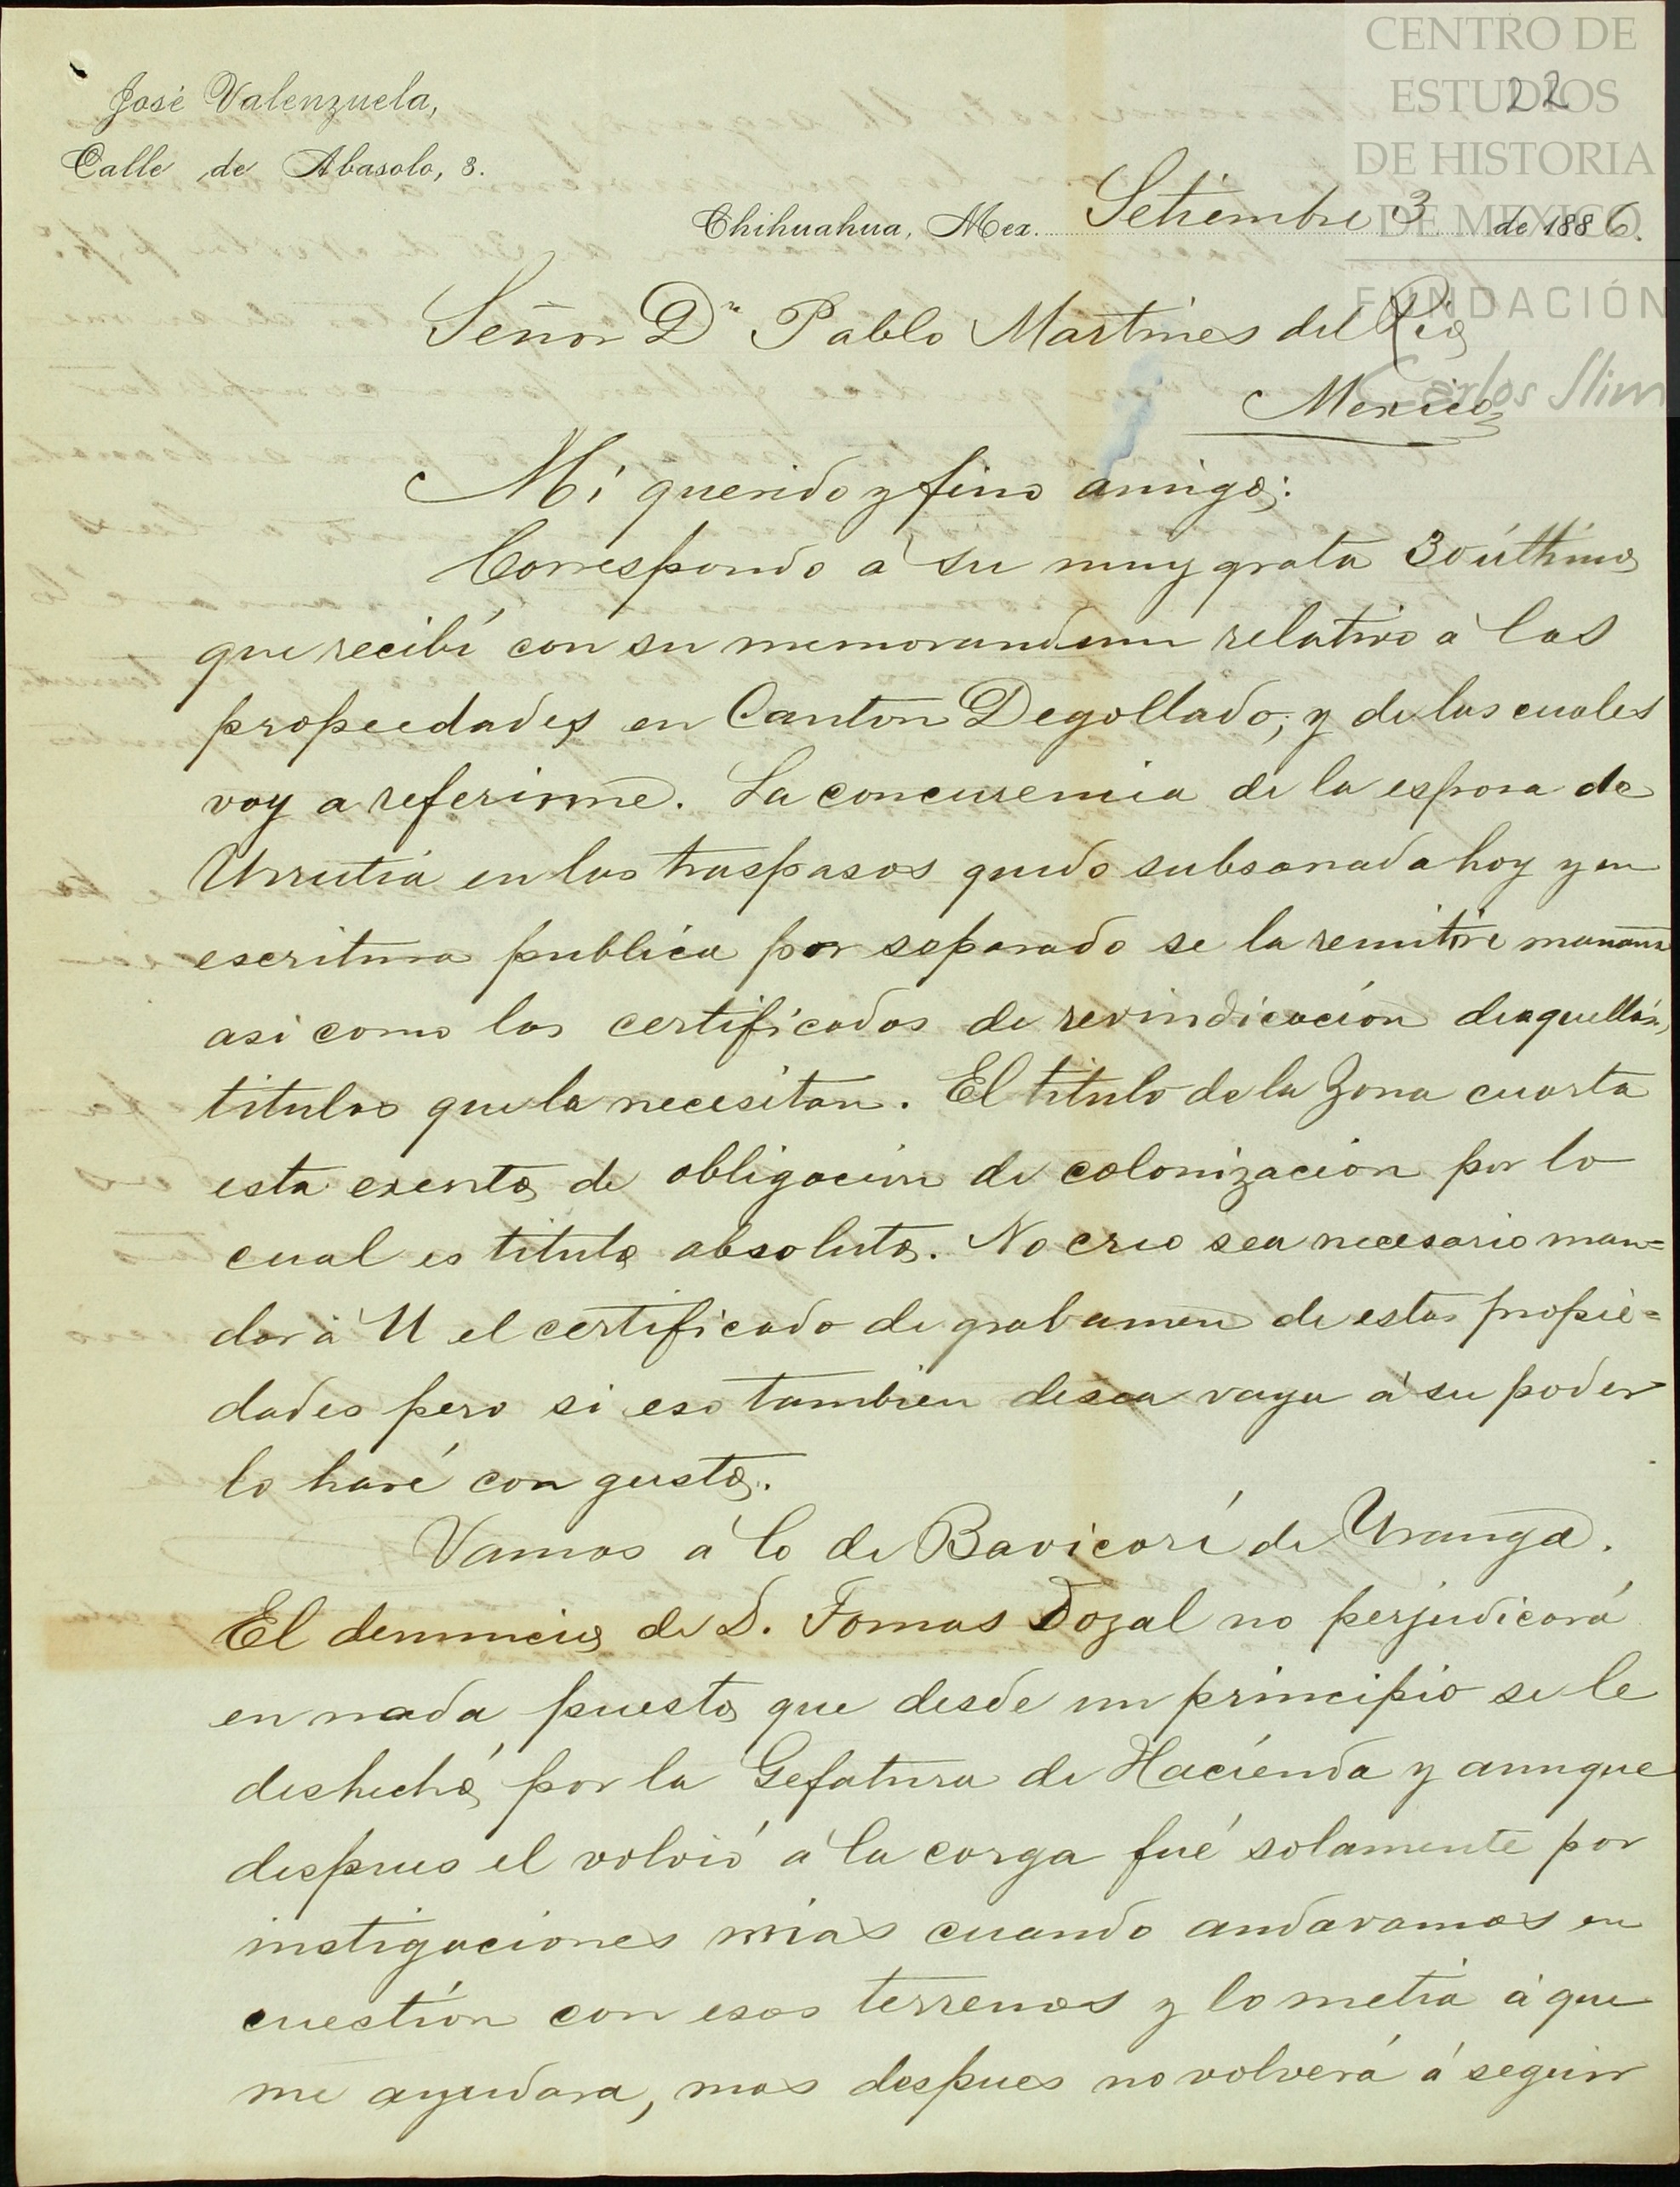 CENTRO DE
ESTUDIOS
DE HISTORIA
DE MEXICO
FUNDACIÓN
Carlos Slim
22
José Valenzuela,
Calle de Abasolo, 3.
Chihuahua, Mex. Setiembre 3 de 1886.
Señor Dn Pablo Martines del Rio
Mexico
Mi querido y fino amigo:
Correspondo á su muy grata 30 último
que recibí con su memorandum relativo á las
propiedades en Canton Degollado, y de las cuales
voy a referirme. La concurencia de la esposa de
Urrutia en los traspasos quedo subsanada hoy y en
escritura publica por separado se la remitiré manana
asi como los certificados de revindicación de aquellos
titulos que la necesitan. El titulo de la Zona cuarta
esta exento de obligacion de colonización por lo
cual es titulo absoluto. No creo sea necesario man=
dar á U el certificado de grabamen de estas propie=
dades pero si eso tambien desea vaya á su poder
lo haré con gusto.
Vamos á lo de Bavicorí de Uranga.
El denuncio de D. Tomas Dozal no perjudicará
en nada puesto que desde un principio se le
deshechó por la Gefatura de Hacienda y aunque
despues el volvió á la carga fué solamente por
instigaciones mias cuando andavamos en
cuestión con esos terrenos y lo metia á que
me ayudara, mas despues no volverá á seguir